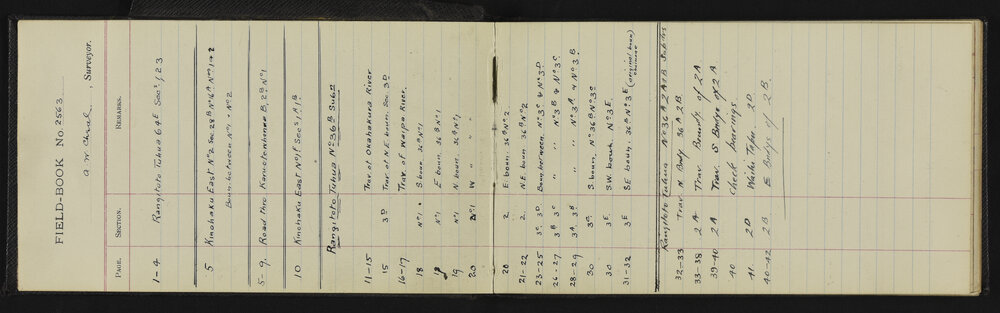 FIELD-BOOK No. 2563
, Surveyor.
PAGE. SECTION. REMARKS.
1-4 Rangitoto Tuhua 64E Secs 1, 2 3
5 Kinohaku East No 2 Sec. 28B No 6A Nos 1 & 2
Boun. between No 1 & No 2
5-9. Road thro Karuotewhenua B, 2B No 1
10 Kinohaku East No 1F Secs 1A 1B
Rangitoto Tuhua No 36B Subdn
11-15 Trav. of Okahakura River
15 3D Trav. of N.E. boun. Sec. 3D
16-17 Trav. of Waipa River.
18 No 1 S boun. 36A No 1
18 No 1 E boun. 36A No 1
19 No 1 N boun. 36A No 1
20 No 1 W " " "
20 2 E. boun. 36A No 2
21-22 2. N.E. boun. 36A No 2
23-25 3C 3D Boun. between No 3C & No 3D
26-27 3B 3C " " No 3B & No 3C
28-29 3A 3B " " No 3A & No 3B
30 3C S. boun. No 36A No 3C
30 3E S.W. boun. No 3E.
31-32 3E S.E. boun. 36A No 3E (original boun)
Rangitoto Tuhua No 36A 2A & 2B
32-33 Trav. N. Bdy 36A 2B
33-38 2A Trav. Boundy of 2A
39-40 2A Trav. S Bndys of 2A
40 Check bearings
41. 2D Waihi Tapu 2D
40-42 2B E Bndys of 2B.